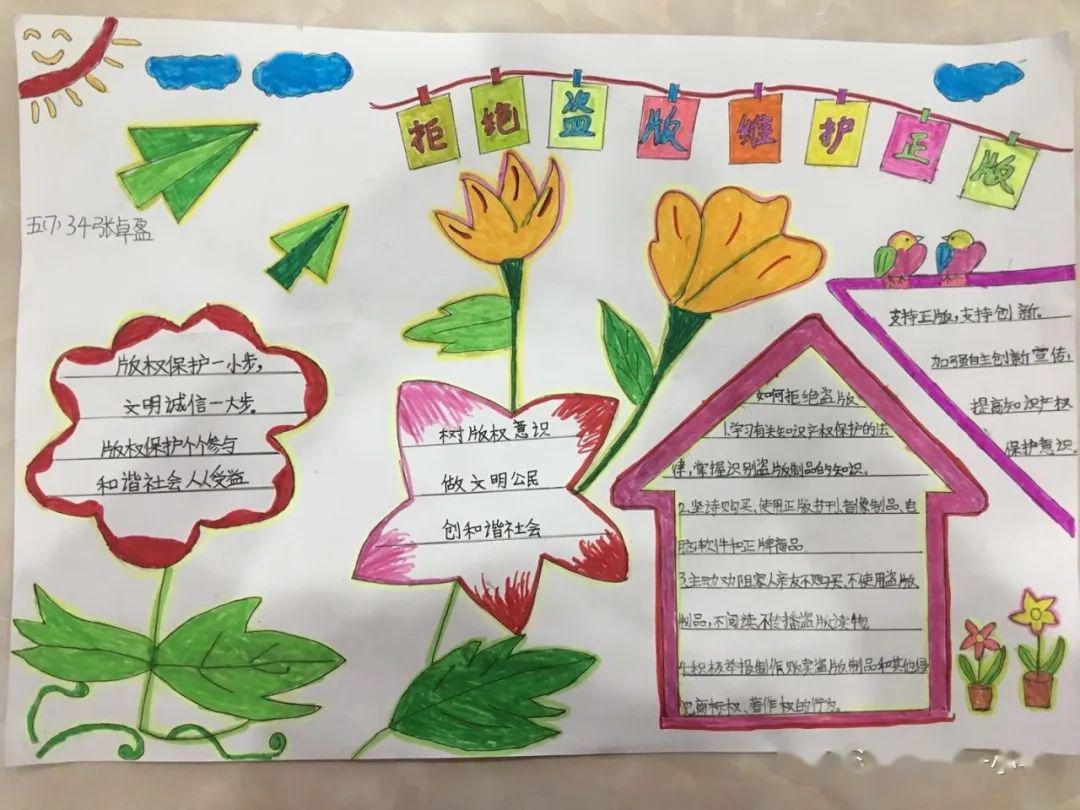 拒绝盗版维护正版
五(7)34张卓盈
版权保护一小步,
文明诚信一大步。
版权保护个个参与
和谐社会人人受益
树版权意识
做文明公民
创和谐社会
如何拒绝盗版
1.学习有关知识产权保护的法
律,掌握识别盗版制品的知识。
2.坚持购买、使用正版书刊、音像制品、电
脑软件和正牌商品
3.主动劝阻家人亲友不购买、不使用盗版
制品,不阅读、不传播盗版读物。
4.积极举报制作、贩卖盗版制品和其他侵
犯商标权、著作权的行为。
支持正版,支持创新。
加强自主创新宣传,
提高知识产权
保护意识。